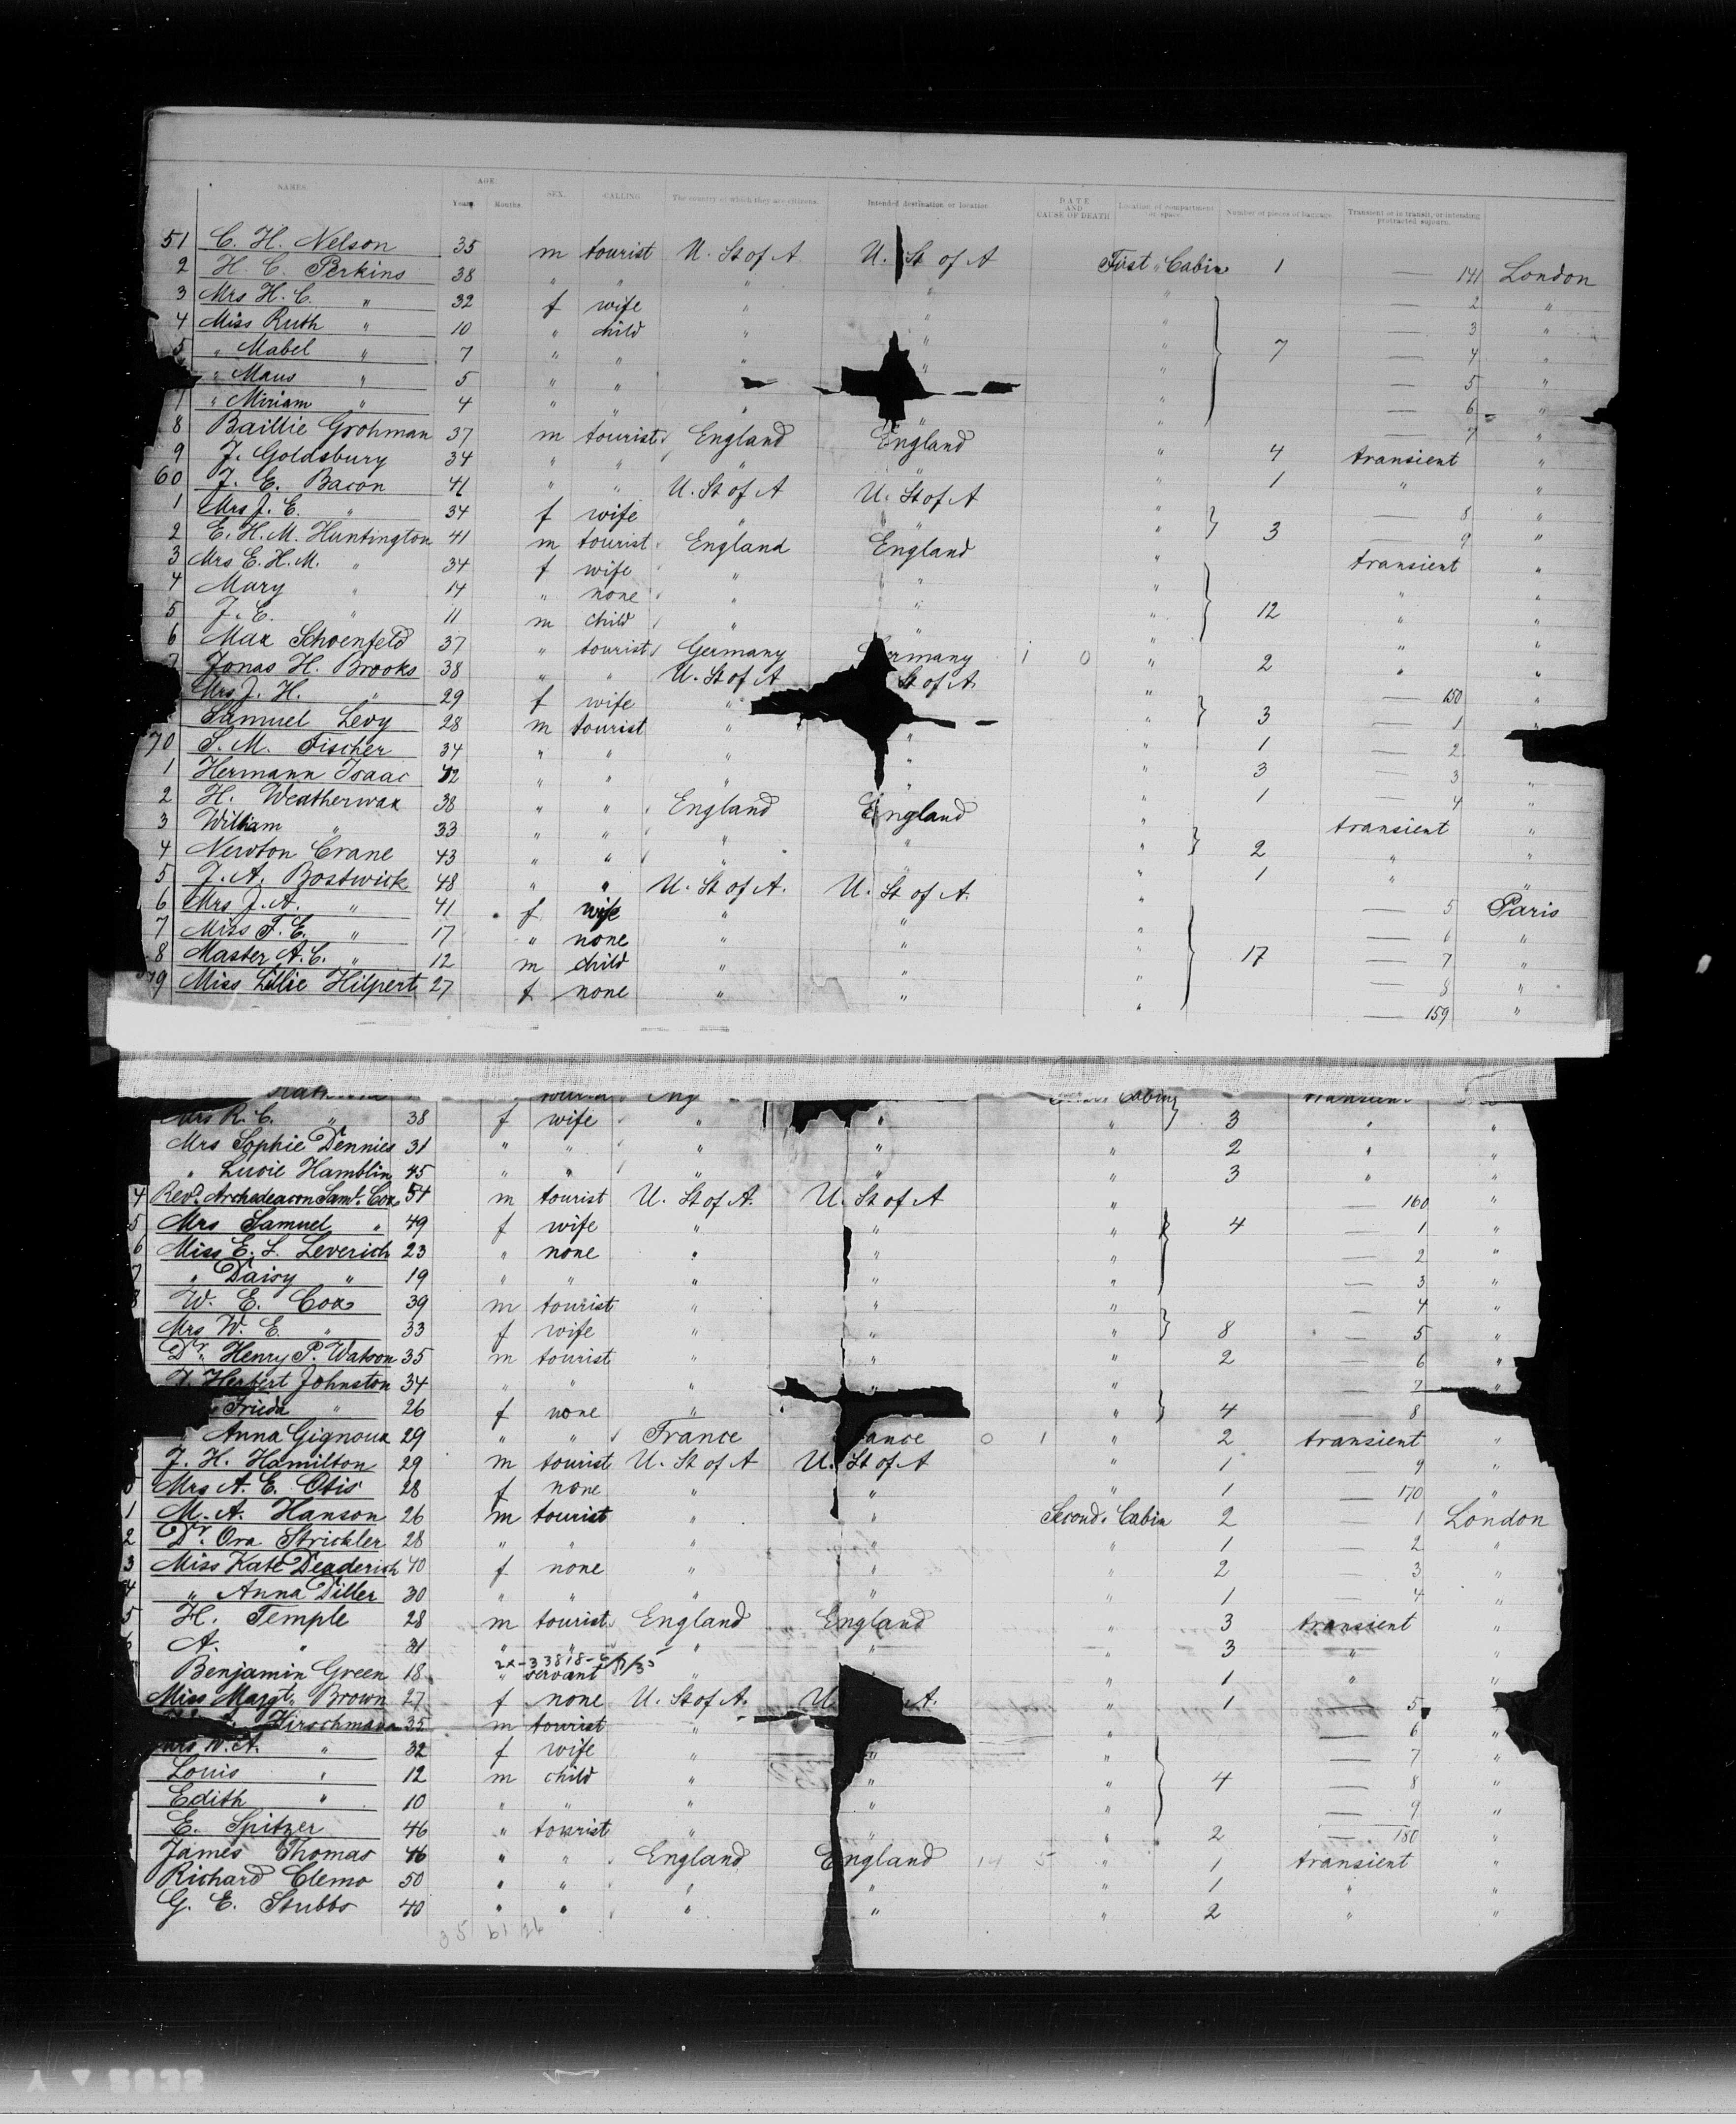 NAMES. AGE. Years. Months. SEX. CALLING. The country of which they are citizens. Intended destination or location. DATE AND CAUSE OF DEATH Location of compartment or space. Number of pieces of baggage. Transient or in transit, or intending protracted sojourn.
51 C. H. Nelson 35 m tourist U. St of A U. St of A First Cabin 1 — 141 London
2 H. C. Perkins 38 " " " " " — 2 "
3 Mrs H. C. " 32 f wife " " " — 3 "
4 Miss Ruth " 10 " child " " " 7 — 4 "
5 " Mabel " 7 " " " " " — 5 "
" Maus " 5 " " " — 6 "
" Miriam " 4 " " " " " — 7 "
8 Baillie Grohman 37 m tourist England England " 4 transient "
9 J. Goldsbury 34 " " " " " 1 " "
60 J. E. Bacon 41 " " U. St of A U. St of A " — 8 "
1 Mrs J. E. " 34 f wife " " " 3 — 9 "
2 E. H. M. Huntington 41 m tourist England England " transient "
3 Mrs E. H. M. " 34 f wife " " " " "
4 Mary " 14 " none " " " 12 " "
5 J. E. " 11 m child " " " " "
6 Max Schoenfeld 37 " tourist Germany Germany 1 0 " 2 " "
Jonas H. Brooks 38 " " U. St of A St of A " — 150 "
Mrs J. H. " 29 f wife " " 3 — 1 "
Samuel Levy 28 m tourist " " " 1 — 2
70 S. M. Fischer 34 " " " " " 3 — 3 "
1 Hermann Isaac 42 " " " " " 1 — 4 "
2 H. Weatherwax 38 " " England England " transient "
3 William " 33 " " " " " 2 " "
4 Newton Crane 43 " " " " " 1 " "
5 J. A. Bostwick 48 " " U. St of A. U. St of A. " — 5 Paris
6 Mrs J. A. " 41 f wife " " " — 6 "
7 Miss F. E. " 17 " none " " " 17 — 7 "
8 Master A. C. " 12 m child " " " — 8 "
9 Miss Lillie Hilpert 27 f none " " " — 159 "
Mrs R. C. " 38 f wife " " " 3 " "
Mrs Sophie Dennies 31 " " " " " 2 " "
" Lucie Hamblin 45 " " " " " 3 " "
4 Revd. Archedeacon Saml. Cox 54 m tourist U. St of A. U. St of A " — 160 "
5 Mrs Samuel " 49 f wife " " " 4 — 1 "
6 Miss E. L. Leverich 23 " none " " " — 2 "
7 " Daisy " 19 " " " " " — 3 "
8 W. E. Cox 39 m tourist " " " — 4 "
Mrs W. E. " 33 f wife " " " 8 — 5 "
Dr. Henry P. Watson 35 m tourist " " " 2 — 6 "
J. Herbert Johnston 34 " " " " " — 7 "
Frieda " 26 f none " " 4 — 8
" Anna Gignoux 29 " " France ance 0 1 " 2 transient "
J. H. Hamilton 29 m tourist U. St of A U. St of A " 1 — 9 "
Mrs A. E. Otis 28 f none " " " 1 — 170 "
1 M. A. Hanson 26 m tourist " " Second Cabin 2 — 1 London
2 Dr. Ora Strickler 28 " " " " " 1 — 2 "
3 Miss Kate Deaderich 40 f none " " " 2 — 3 "
4 " Anna Diller 30 " " " " " 1 — 4 "
5 H. Temple 28 m tourist England England " 3 transient "
A. " 31 " " " " " 3 " "
Benjamin Green 18 " servant " 1 " "
Miss Margt. Brown 27 f none U. St of A. U. A. " 1 — 5
Hirschmann 35 m tourist " " — 6
Mrs W. A. " 32 f wife " " " — 7 "
Louis " 12 m child " " " 4 — 8 "
Edith " 10 " " " " " — 9 "
E. Spitzer 46 " tourist " " " 2 — 180 "
James Thomas 46 " " England England 14 5 " 1 transient "
Richard Clemo 50 " " " " " 1 " "
G. E. Stubbs 40 " " " " " 2 " "